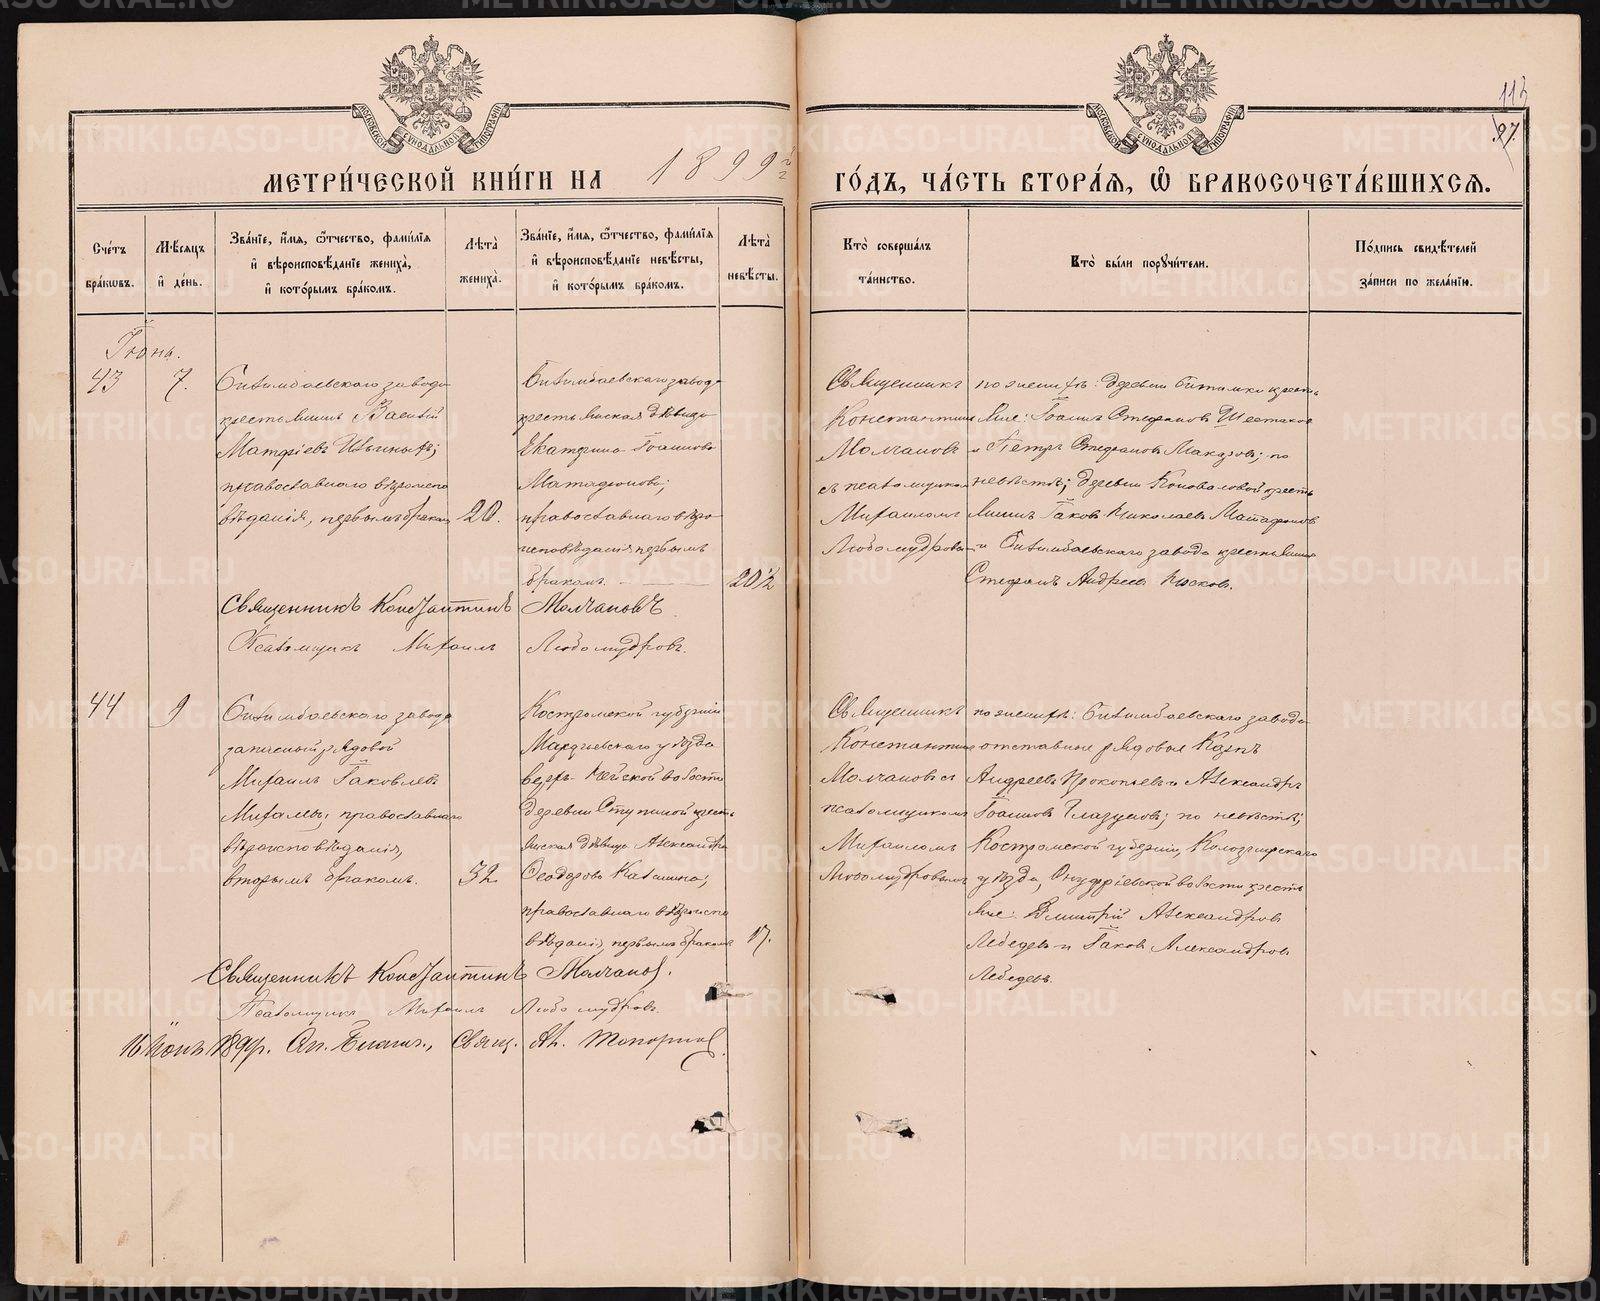 113
97.
МОСКОВСКОЙ СѴНОДАЛЬНОЙ ТИПОГРАФІИ
МОСКОВСКОЙ СѴНОДАЛЬНОЙ ТИПОГРАФІИ
МЕТРИ́ЧЕСКОЙ КНИ́ГИ НА 1899й
ГО́ДЪ, ЧА́СТЬ ВТОРА́Я, Ѿ БРАКОСОЧЕТА́ВШИХСЯ.
Сче́тъ бра́кѡвъ.
Мѣ́сяцъ и҆ де́нь.
Зва́нїе, и҆́мя, ѻ҆́тчество, фами́лїя и҆ вѣроисповѣ́данїе жениха̀, и҆ кото́рымъ бра́комъ.
Лѣта̀ жениха̀.
Зва́нїе, и҆́мя, ѻ҆́тчество, фами́лїя и҆ вѣроисповѣ́данїе невѣ́сты, и҆ кото́рымъ бра́комъ.
Лѣта̀ невѣ́сты.
Кто̀ соверша́лъ та́инство.
Кто̀ бы́ли порꙋчи́тели.
По́дпись свидѣ́телей за́писи по жела́нїю.
Іюнь.
43
7.
Билимбаевскаго завода
крестьянинъ Василій
Матфіевъ
православнаго вѣроиспо
вѣданія, первымъ бракомъ
20.
Билимбаевскаго завода
крестьянская дѣвица
Екатерина Іоаннова
Матафонова;
православнаго вѣро
исповѣданія первымъ
бракомъ.
20½
Священникъ
Константинъ
Молчановъ
съ псаломщикомъ
Михаиломъ
Любомудровымъ
по женихѣ: деревни Битимки кресть
яне: Іоаннъ Стефановъ Шестаков
и Петръ Стефановъ Макаровъ; по
невѣстѣ; деревни Коноваловой кресть
янинъ Іаковъ Николаевъ Матафонов
и Билимбаевскаго завода крестьянинъ
Стефанъ Андреевъ
Священникъ Константинъ Молчановъ.
Псаломщикъ Михаилъ Любомудровъ.
44
9
Билимбаевскаго завода
запасный рядовой
Михаилъ Іаковлевъ
православнаго
вѣроисповѣданія,
вторымъ бракомъ.
32
Костромской губерніи
уѣзда
волости
деревни Ступиной кресть
янская дѣвица Александра
Ѳеодорова
православнаго вѣроиспо
вѣданія, первымъ бракомъ
17.
Священникъ
Константинъ
Молчановъ съ
псаломщикомъ
Михаиломъ
Любомудровымъ
по женихѣ: Билимбаевскаго завода
отставные рядовые Карпъ
Андреевъ Прокопьевъ и Александръ
Іоанновъ Глазуновъ; по невѣстѣ;
Костромской губерніи, Кологривскаго
уѣзда, Онуфріевской волости кресть
яне: Дмитрій Александров
Лебедевъ и Іаковъ Александров
Лебедевъ.
Священникъ Константинъ Молчановъ.
Псаломщикъ Михаилъ Любомудровъ.
16 Іюня 1899г. Оо. Благоч., Свящ. Ал. Топорковъ.
METRIKI.GASO-URAL.RU